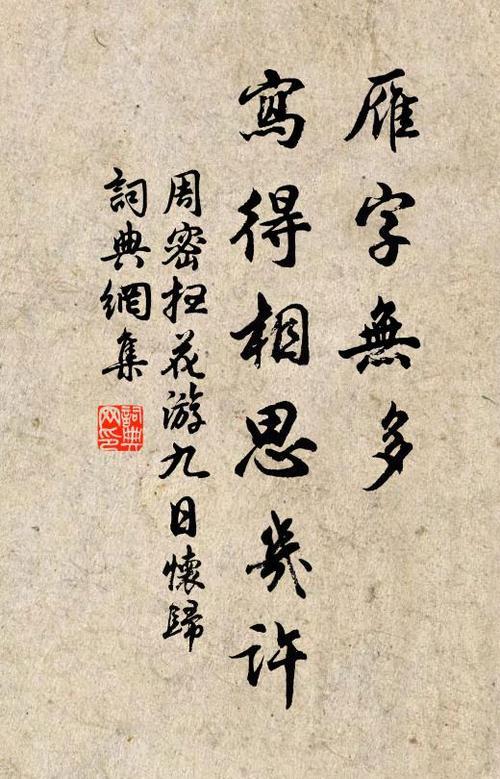 雁字無多
寫得相思幾許
周密扫花游九日懷歸
詞典網集
詞典
网印